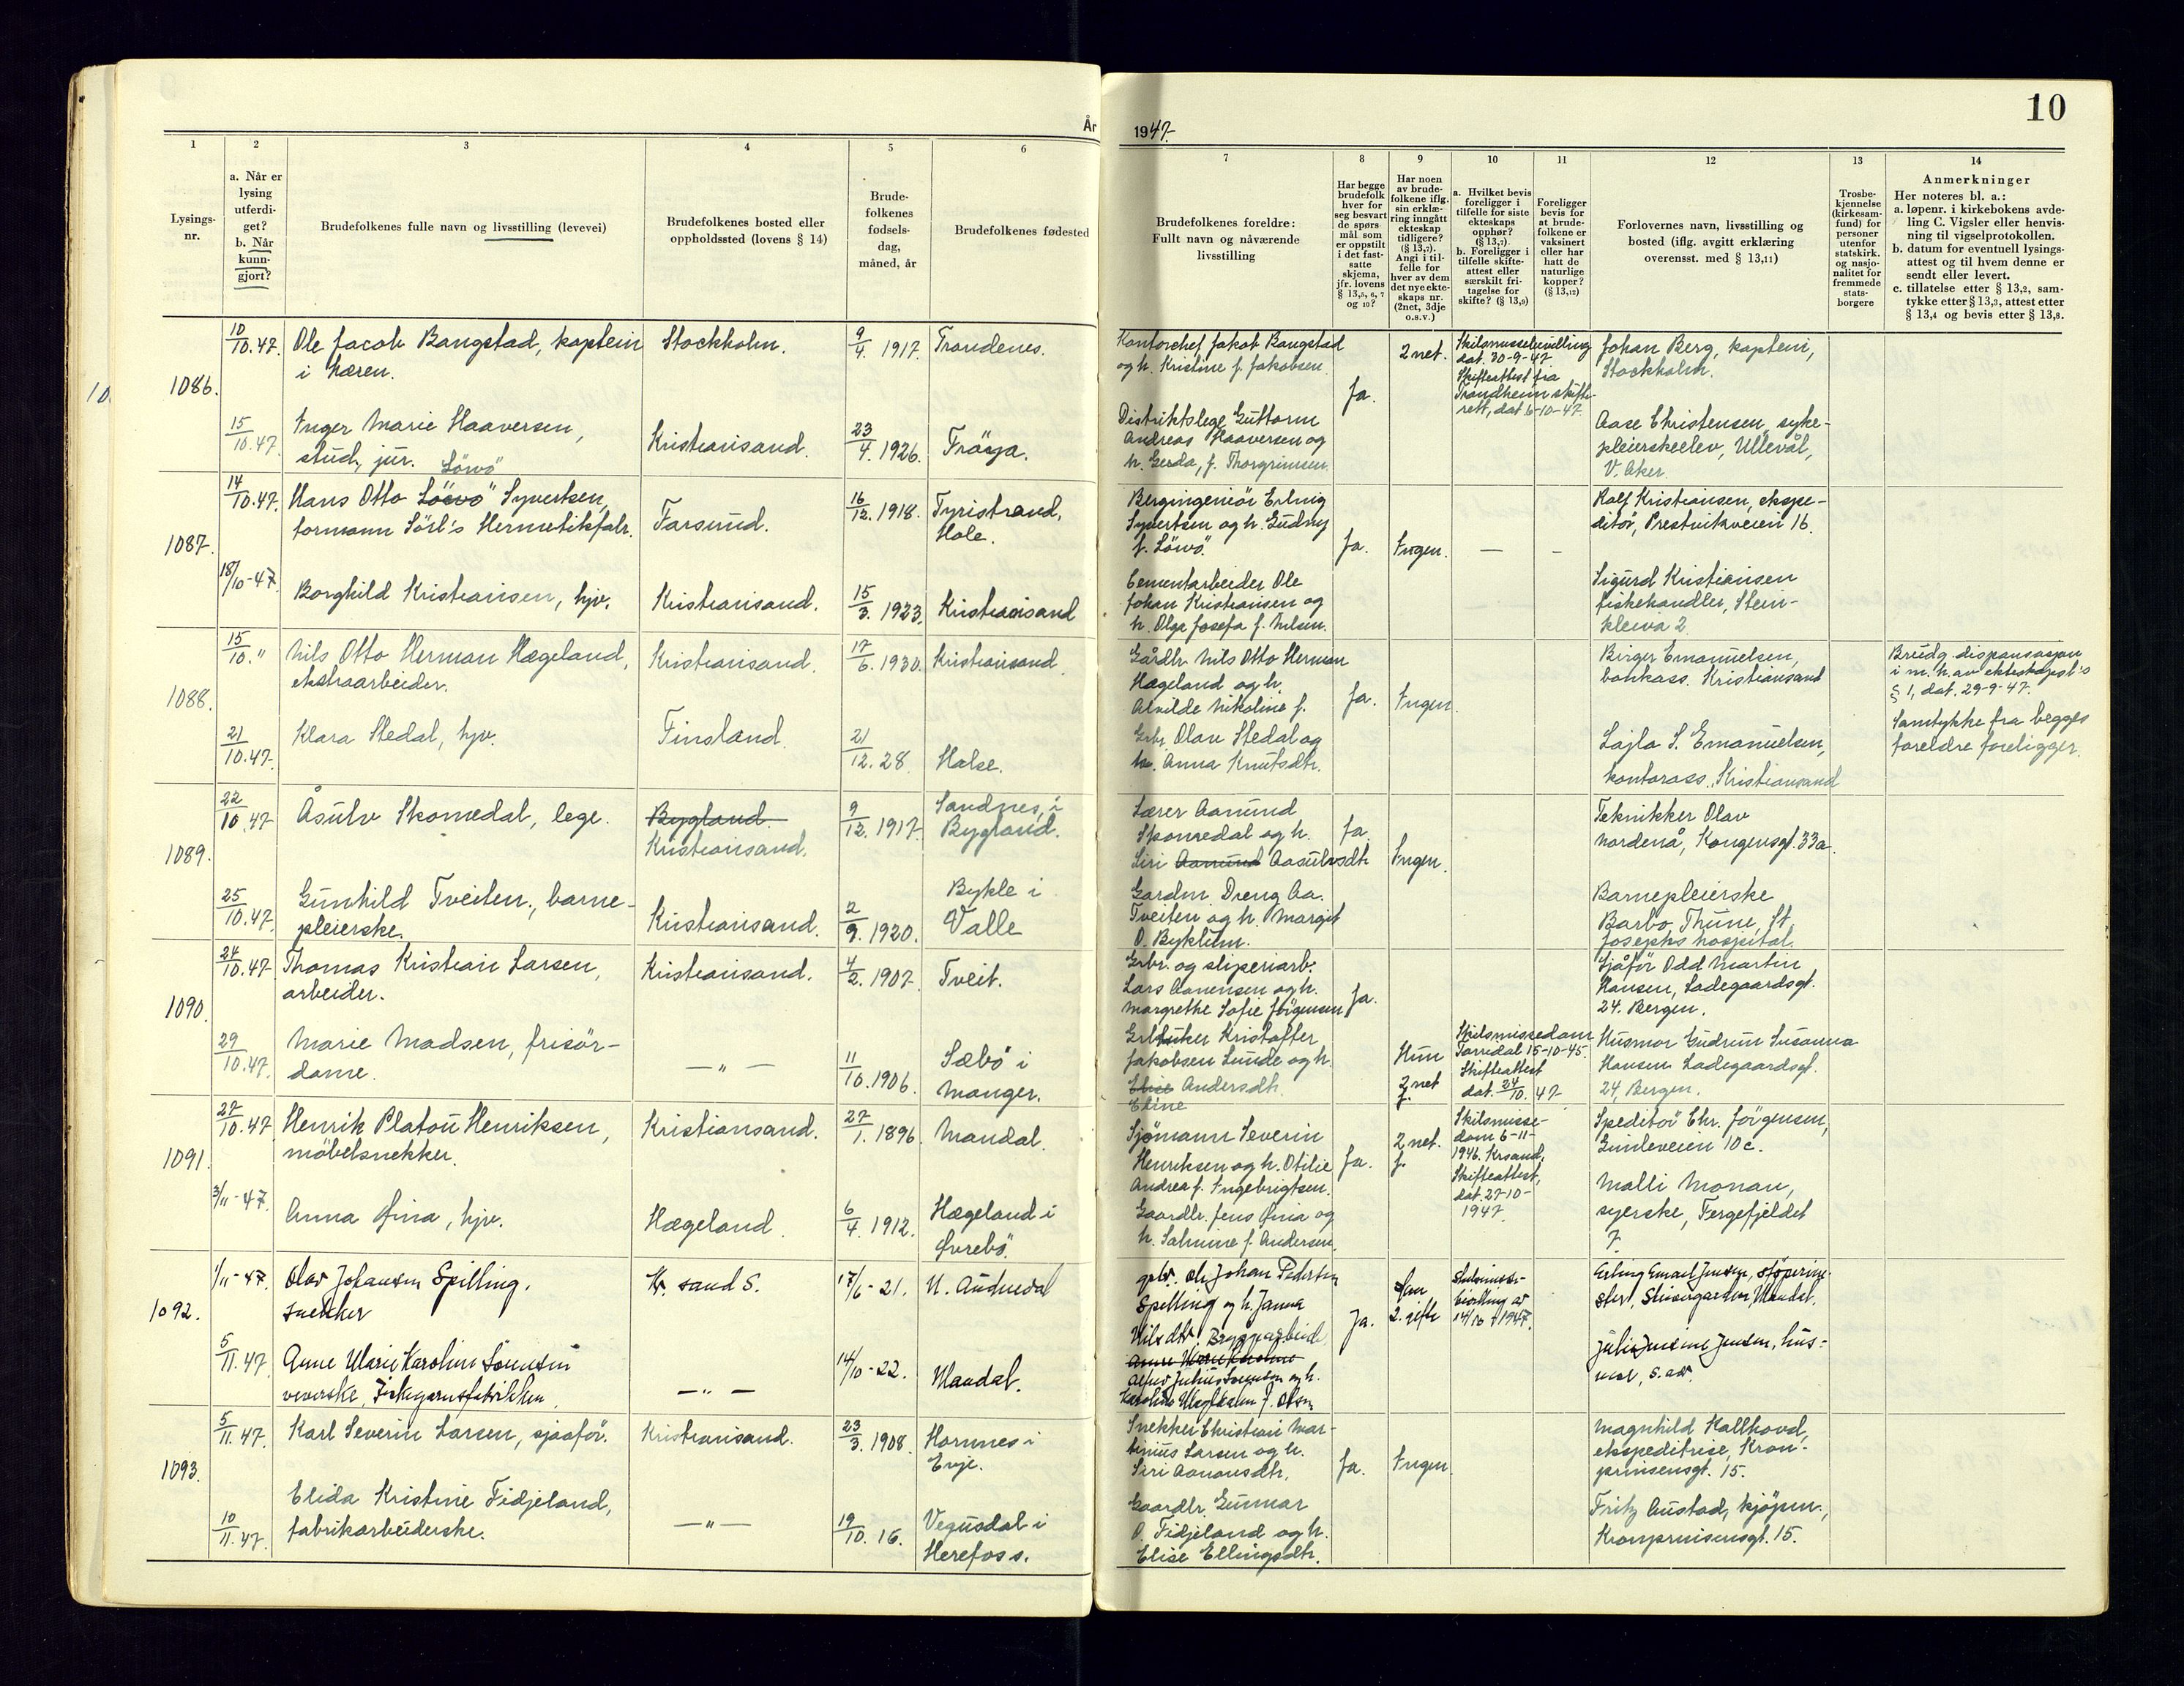 10
År 1947.
1
2
3
4
5
6
7
8
9
10
11
12
13
14
Lysings-
nr.
a. Når er
lysing
utferdi-
get?
b. Når
kunn-
gjort?
Brudefolkenes fulle navn og livsstilling (levevei)
Brudefolkenes bosted eller
oppholdssted (lovens § 14)
Brude-
folkenes
fødsels-
dag,
måned, år
Brudefolkenes fødested
Brudefolkenes foreldre:
Fullt navn og nåværende
livsstilling
Har begge
brudefolk
hver for
seg besvart
de spørs-
mål som
er oppstilt
i det fast-
satte
skjema,
jfr. lovens
§ 13,5, 6, 7
og 10?
Har noen
av brude-
folkene iflg.
sin erklæ-
ring inngått
ekteskap
tidligere?
(§ 13,7).
Angi i til-
felle for
hver av dem
det nye ekte-
skaps nr.
(2net, 3dje
o.s.v.)
a. Hvilket bevis
foreligger i
tilfelle for siste
ekteskaps
opphør?
(§ 13,7).
b. Foreligger i
tilfelle skifte-
attest eller
særskilt fri-
tagelse for
skifte? (§ 13,9)
Foreligger
bevis for
at brude-
folkene er
vaksinert
eller har
hatt de
naturlige
kopper?
(§ 13,12)
Forlovernes navn, livsstilling og
bosted (iflg. avgitt erklæring
overensst. med § 13,11)
Trosbe-
kjennelse
(kirkesam-
fund) for
personer
utenfor
statskirk.
og nasjo-
nalitet for
fremmede
stats-
borgere
Anmerkninger
Her noteres bl. a.:
a. løpenr. i kirkebokens avde-
ling C. Vigsler eller henvis-
ning til vigselprotokollen.
b. datum for eventuell lysings-
attest og til hvem denne er
sendt eller levert.
c. tillatelse etter § 13,2, sam-
tykke etter § 13,3, attest etter
§ 13,4 og bevis etter § 13,8.
1086.
10/10.47.
Ole Jacob Bangstad, kaptein
i hæren.
Stockholm.
9/4. 1917.
Trondenes.
Kontorchef Jakob Bangstad
og h. Kristine f. Jakobsen.
Ja.
2 net.
Skilsmissebevilling
dat. 30-9-47
Skifteattest fra
Trondheim skifte-
rett, dat 6-10-47.
Johan Berg, kaptein,
Stockholm.
15/10.47.
Inger Marie Haaversen,
stud. jur.
Kristiansand.
23/4. 1926.
Fröya.
Distriktslege Guttorm
Andreas Haaversen og
h. Gerda, f. Thorgrimsen.
Aase Christensen, syke-
pleierskeelev, Ullevål,
V. Aker.
1087.
14/10.47.
Löwö
Hans Otto Syvertsen,
formann Sörl's Hermetikfabr.
Farsund.
16/12. 1918.
Tyristrand,
Hole.
Bergingeniör Erling
Syvertsen og h. Gudny
f. Löwö.
Ja.
Ingen.
—
-
Rolf Kristiansen, ekspe-
ditör, Prestvikveien 16.
18/10-47.
Borghild Kristiansen, hjv.
Kristiansand.
15/3. 1923.
Kristiansand
Cementarbeider Ole
Johan Kristiansen og
h. Olga Josefa f. Nilsen.
Sigurd Kristiansen
fiskehandler, Stein-
kleiva 2.
1088.
15/10. "
Nils Otto Herman Hægeland,
ekstraarbeider.
Kristiansand.
17/6. 1930.
Kristiansand
Gårdbr. Nils Otto Herman
Hægeland og h.
Alvilde Nikoline f.
Ja.
Ingen.
Birger Emanuelsen,
bankass. Kristiansand
Brudg. dispensasjon
i m. h. av ekteskapsl's
§ 1, dat. 29-9-47.
Samtykke fra begges
foreldre foreligger.
21/10.47.
Klara Stedal, hjv.
Finsland.
21/12. 28.
Halse.
Grbr. Olav Stedal og
h. Anna Knutsdtr.
Lajla S. Emanuelsen,
kontorass. Kristiansand
1089.
22/10.47.
Åsulv Skomedal, lege.
Bygland
Kristiansand.
9/12. 1917.
Sandnes, i
Bygland.
Lærer Aanund
Skomedal og h.
Siri Aanund Aasulvsdtr.
Ja.
Ingen.
Teknikker Olav
Nordenå, Kongensgt. 33a.
25/10.47.
Gunhild Tveiten, barne-
pleierske.
Kristiansand.
2/9. 1920.
Bykle i
Valle
Gardm. Dreng Aa.
Tveiten og h. Margit
O. Byklum.
Barnepleierske
Barbo Thune, St.
Josephs hospital.
1090.
24/10.47
Thomas Kristian Larsen,
arbeider.
Kristiansand.
4/2. 1907.
Tveit.
Grbr. og sliperiarb.
Lars Aanensen og h.
Margrethe Sofie Jörgensen
Ja.
Sjåför Odd Martin
Hansen, Ladegaardsgt.
24. Bergen.
29/10.47.
Marie Madsen, frisör-
dame.
— " —
11/10. 1906.
Sæbö i
Manger.
Grbruker Kristoffer
Jakobsen Lunde og h.
Elise Andersdtr.
Eline
Hun
2 net
f.
Skilsmissedom
Torridal 15-10-45.
Skifteattest
dat. 24/10. 47-
Husmor Gudrun Susanna
Hansen Ladegaardsgt.
24, Bergen.
1091.
27/10.47.
Henrik Platou Henriksen,
möbelsnekker.
Kristiansand.
27/1. 1896.
Mandal.
Sjömann Severin
Henriksen og h. Otilie
Andrea f. Ingebrigtsen.
Ja.
2 net.
f.
Skilsmisse-
dom 6-11-
1946. Krsand.
Skifteattest,
dat. 27-10-
1947.
Speditör Chr. Jörgensen,
Gimleveien 10c.
3/11-47.
Anna Øina, hjv.
Hægeland.
6/4. 1912.
Hægeland i
Øvrebö.
Gaardbr. Jens Øina og
h. Salmine f. Andersen.
Malli Monan,
syerske, Tergefjeldet
7.
1092.
1/11-47.
Olav Johansen Spilling.
snekker
Kr. sand S.
17/6-21.
N. Audnedal
gbr. Ole Johan Pedersen
Spilling og h. Janna
Nilsdtr.
Ja.
2. gifte
Skilsmisse-
bevilling av
14/10 1947.
Erling Emael Jensen,
5/11.47.
Anne Marie Karoline Sörensen
veverske, Fiskegarnsfabrikken.
— " —
14/10-22.
Mandal.
Bryggearbeid.
Anne Marie Karoline
Alfred Julius Sörensen og h.
Karoline f. Olsen
Julie Jensine Jensen, hus-
mor, s. adr.
1093.
5/11.47.
Karl Severin Larsen, sjaaför.
Kristiansand.
23/3. 1908.
Hornnes i
Evje.
Snekker Christian Mar-
tinius Larsen og h.
Siri Aanonsdtr.
Ja.
Ingen.
Magnhild Hallhovd,
ekspeditrise, Kron-
prinsensgt. 15.
10/11.47.
Elida Kristine Fidjeland,
fabrikarbeiderske.
— " —
19/10. 16.
Vegusdal i
Herefoss.
Gaardbr. Gunnar
O. Fidjeland og h.
Elise Ellingsdtr.
Fritz Austad, kjöpm.,
Kronprinsensgt. 15.